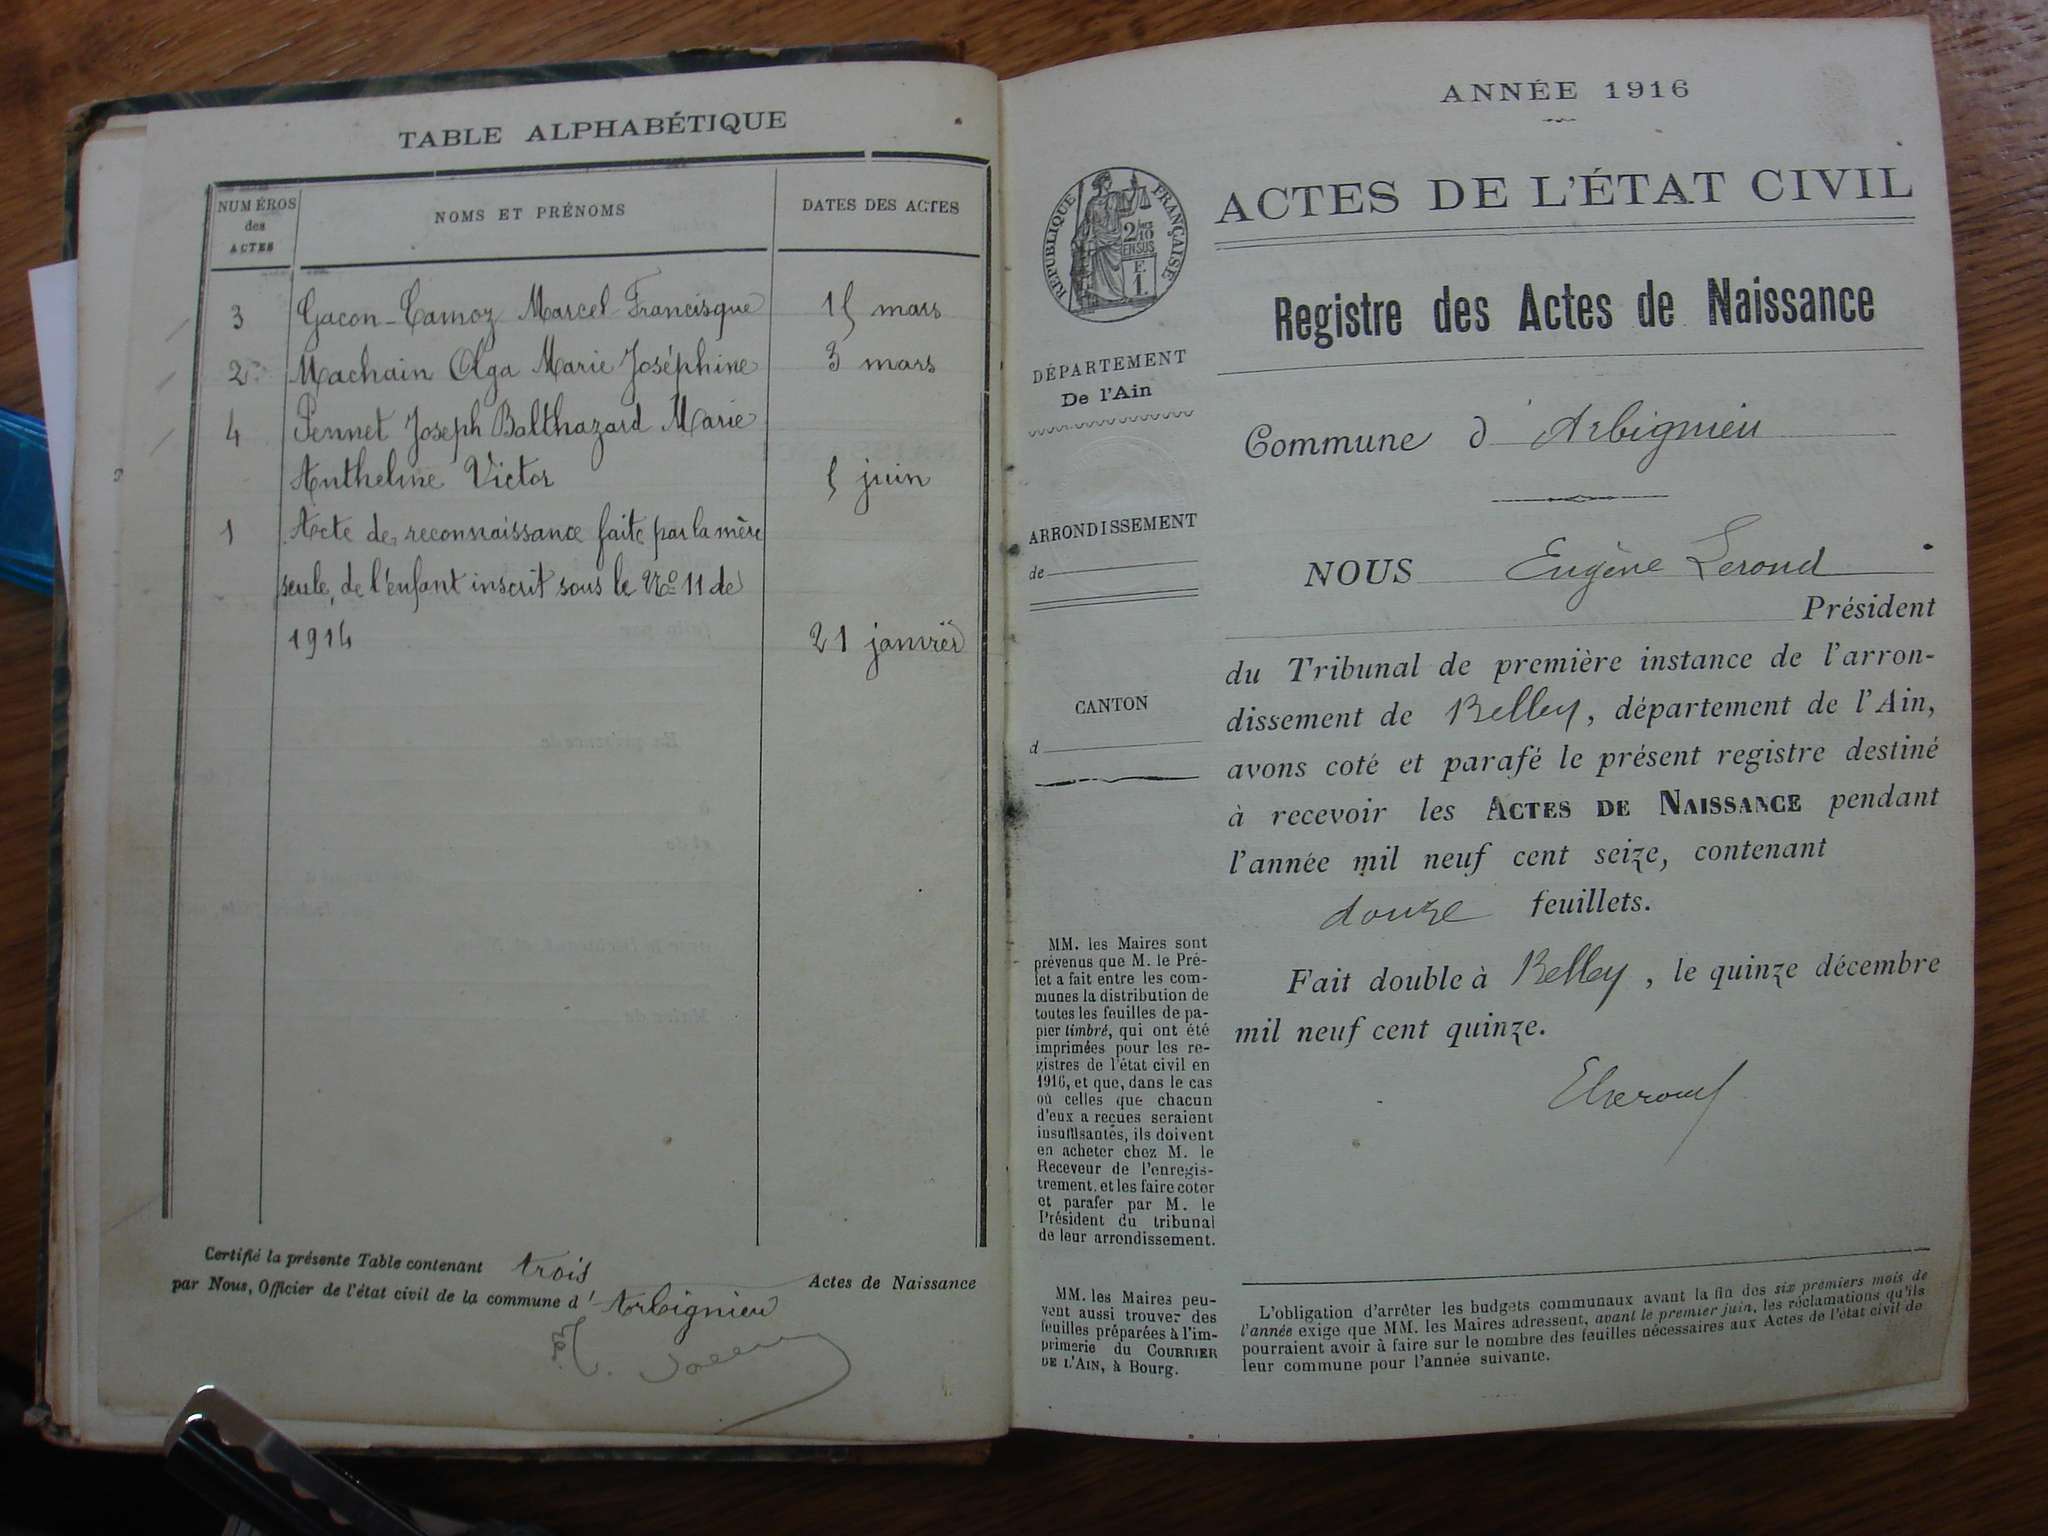 TABLE ALPHABÉTIQUE
NUMÉROS
des
ACTES
NOMS ET PRÉNOMS
DATES DES ACTES
3 Gacon-Camoz Marcel Francisque 15 mars
2 Machain Olga Marie Joséphine 3 mars
4 Pennet Joseph Balthazard Marie
Anthelme Victor 5 juin
1 Acte de reconnaissance faite par la mère
seule, de l'enfant inscrit sous le No 11 de
1914 21 janvier
Certifié la présente Table contenant trois Actes de Naissance
par Nous, Officier de l'état civil de la commune d'Arbignieu
ANNÉE 1916
RÉPUBLIQUE FRANÇAISE
2/10
EN SUS
E.
1.
ACTES DE L'ÉTAT CIVIL
Registre des Actes de Naissance
DÉPARTEMENT
De l'Ain
ARRONDISSEMENT
de
CANTON
d
MM. les Maires sont
prévenus que M. le Pré-
fet a fait entre les com-
munes la distribution de
toutes les feuilles de pa-
pier timbré, qui ont été
imprimées pour les re-
gistres de l'état civil en
1916, et que, dans le cas
où celles que chacun
d'eux a reçues seraient
insuffisantes, ils doivent
en acheter chez M. le
Receveur de l'enregis-
trement, et les faire coter
et parafer par M. le
Président du tribunal
de leur arrondissement.
MM. les Maires peu-
vent aussi trouver des
feuilles préparées à l'im-
primerie du COURRIER
DE L'AIN, à Bourg.
Commune d'Arbignieu
NOUS Eugène Lerond
Président
du Tribunal de première instance de l'arron-
dissement de Belley, département de l'Ain,
avons coté et parafé le présent registre destiné
à recevoir les ACTES DE NAISSANCE pendant
l'année mil neuf cent seize, contenant
douze feuillets.
Fait double à Belley, le quinze décembre
mil neuf cent quinze.
L'obligation d'arrêter les budgets communaux avant la fin des six premiers mois de
l'année exige que MM. les Maires adressent, avant le premier juin, les réclamations qu'ils
pourraient avoir à faire sur le nombre des feuilles nécessaires aux Actes de l'état civil de
leur commune pour l'année suivante.